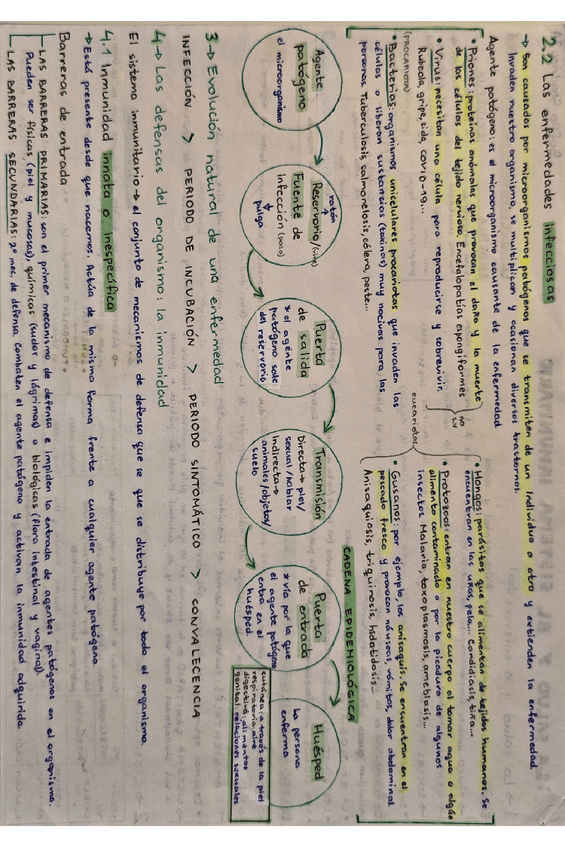 2.2 Las enfermedades infecciosas
→ Son causadas por microorganismos patógenos que se transmiten de un individuo a otro y extienden la enfermedad.
Invaden nuestro organismo, se multiplican y ocasionan diversos trastornos.
Agente patógeno: es el microorganismo causante de la enfermedad
• Priones: proteínas anómalas que provocan el daño y la muerte
de las células del tejido nervioso. Encefalopatías espongiformes
• Virus: necesitan una célula para reproducirse y sobrevivir.
Rubeola, gripe, sida, COVID-19...
no
sv
(PROCARIOTA)
• Bacterias: organismos unicelulares procariotas que invaden las
células o liberan sustancias (toxinas) muy nocivas para las
personas. Tuberculosis, salmonelosis, cólera, peste...
eucariotas
• Hongos: parásitos que se alimentan de tejidos humanos. Se
encuentran en las uñas, pelo... Candidiasis, tiña...
• Protozoos: entran en nuestro cuerpo al tomar agua o algún
alimento contaminado o por la picadura de algunos
insectos. Malaria, toxoplasmosis, amebiasis...
• Gusanos: por ejemplo, las anisaquis. Se encuentran en el
pescado fresco y provocan náuseas, vómitos, dolor abdominal
Anisaquiosis, triquinosis, hidatidosis...
CADENA EPIDEMIOLÓGICA
Agente
patógeno
el microorganismo
ratón
Reservorio
Fuente de
infección (foco)
pulga
Puerta
de salida
* el agente
patógeno sale
del reservorio
Transmisión
Directa → piel/
sexual/hablar
Indirecta →
animales/objetos/
suelo
Puerta
de entrada
* vía por la que
el agente patógeno
entra en el
huésped
Huésped
La persona
enferma
cutánea: a través de la piel
respiratoria: aire
digestiva: alimentos
genital: relaciones sexuales
3 → Evolución natural de una enfermedad
INFECCIÓN > PERIODO DE INCUBACIÓN > PERIODO SINTOMÁTICO > CONVALECENCIA
4 → Las defensas del organismo: la inmunidad
El sistema inmunitario → el conjunto de mecanismos de defensa que se que se distribuye por todo el organismo.
4.1 Inmunidad innata o inespecífica
→ Está presente desde que nacemos. Actúa de la misma forma frente a cualquier agente patógeno.
Barreras de entrada
LAS BARRERAS PRIMARIAS: son el primer mecanismo de defensa e impiden la entrada de agentes patógenos en el organismo.
Pueden ser físicas (piel y mucosas), químicas (sudor y lágrimas) o biológicas (flora intestinal y vaginal).
LAS BARRERAS SECUNDARIAS: 2º mec. de defensa. Combaten el agente patógeno y activan la inmunidad adquirida.